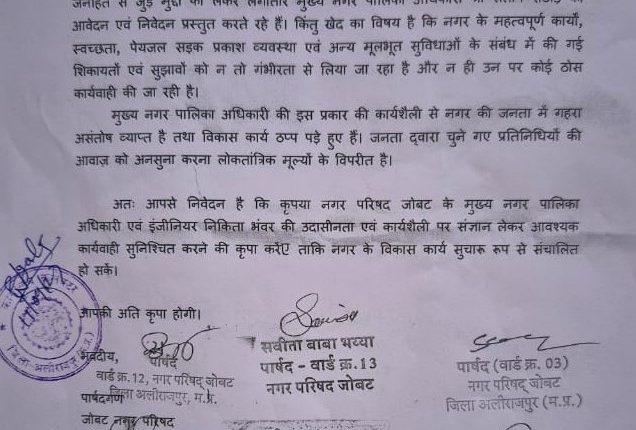 जनहित से जुड़े मुद्दों को लेकर लगातार मुख्य नगर पालिका अधिकारी
आवेदन एवं निवेदन प्रस्तुत करते रहे हैं। किंतु खेद का विषय है कि नगर के महत्वपूर्ण कार्यों,
स्वच्छता, पेयजल सड़क प्रकाश व्यवस्था एवं अन्य मूलभूत सुविधाओं के संबंध में की गई
शिकायतों एवं सुझावों को न तो गंभीरता से लिया जा रहा है और न ही उन पर कोई ठोस
कार्यवाही की जा रही है।
मुख्य नगर पालिका अधिकारी की इस प्रकार की कार्यशैली से नगर की जनता में गहरा
असंतोष व्याप्त है तथा विकास कार्य ठप्प पड़े हुए हैं। जनता द्वारा चुने गए प्रतिनिधियों की
आवाज़ को अनसुना करना लोकतांत्रिक मूल्यों के विपरीत है।
अतः आपसे निवेदन है कि कृपया नगर परिषद जोबट के मुख्य नगर पालिका
अधिकारी एवं इंजीनियर निकिता भंवर की उदासीनता एवं कार्यशैली पर संज्ञान लेकर आवश्यक
कार्यवाही सुनिश्चित करने की कृपा करेंए ताकि नगर के विकास कार्य सुचारू रूप से संचालित
हो सकें।
आपकी अति कृपा होगी।
भवदीय,
पार्षद
वार्ड क्र.12, नगर परिषद जोबट
जिला अलीराजपुर, म.प्र.
पार्षदगण
जोबट नगर परिषद
सवीता बाबा भय्या
पार्षद - वार्ड क्र.13
नगर परिषद जोबट
पार्षद (वार्ड क्र. 03)
नगर परिषद् जोबट
जिला अलीराजपुर (म.प्र.)